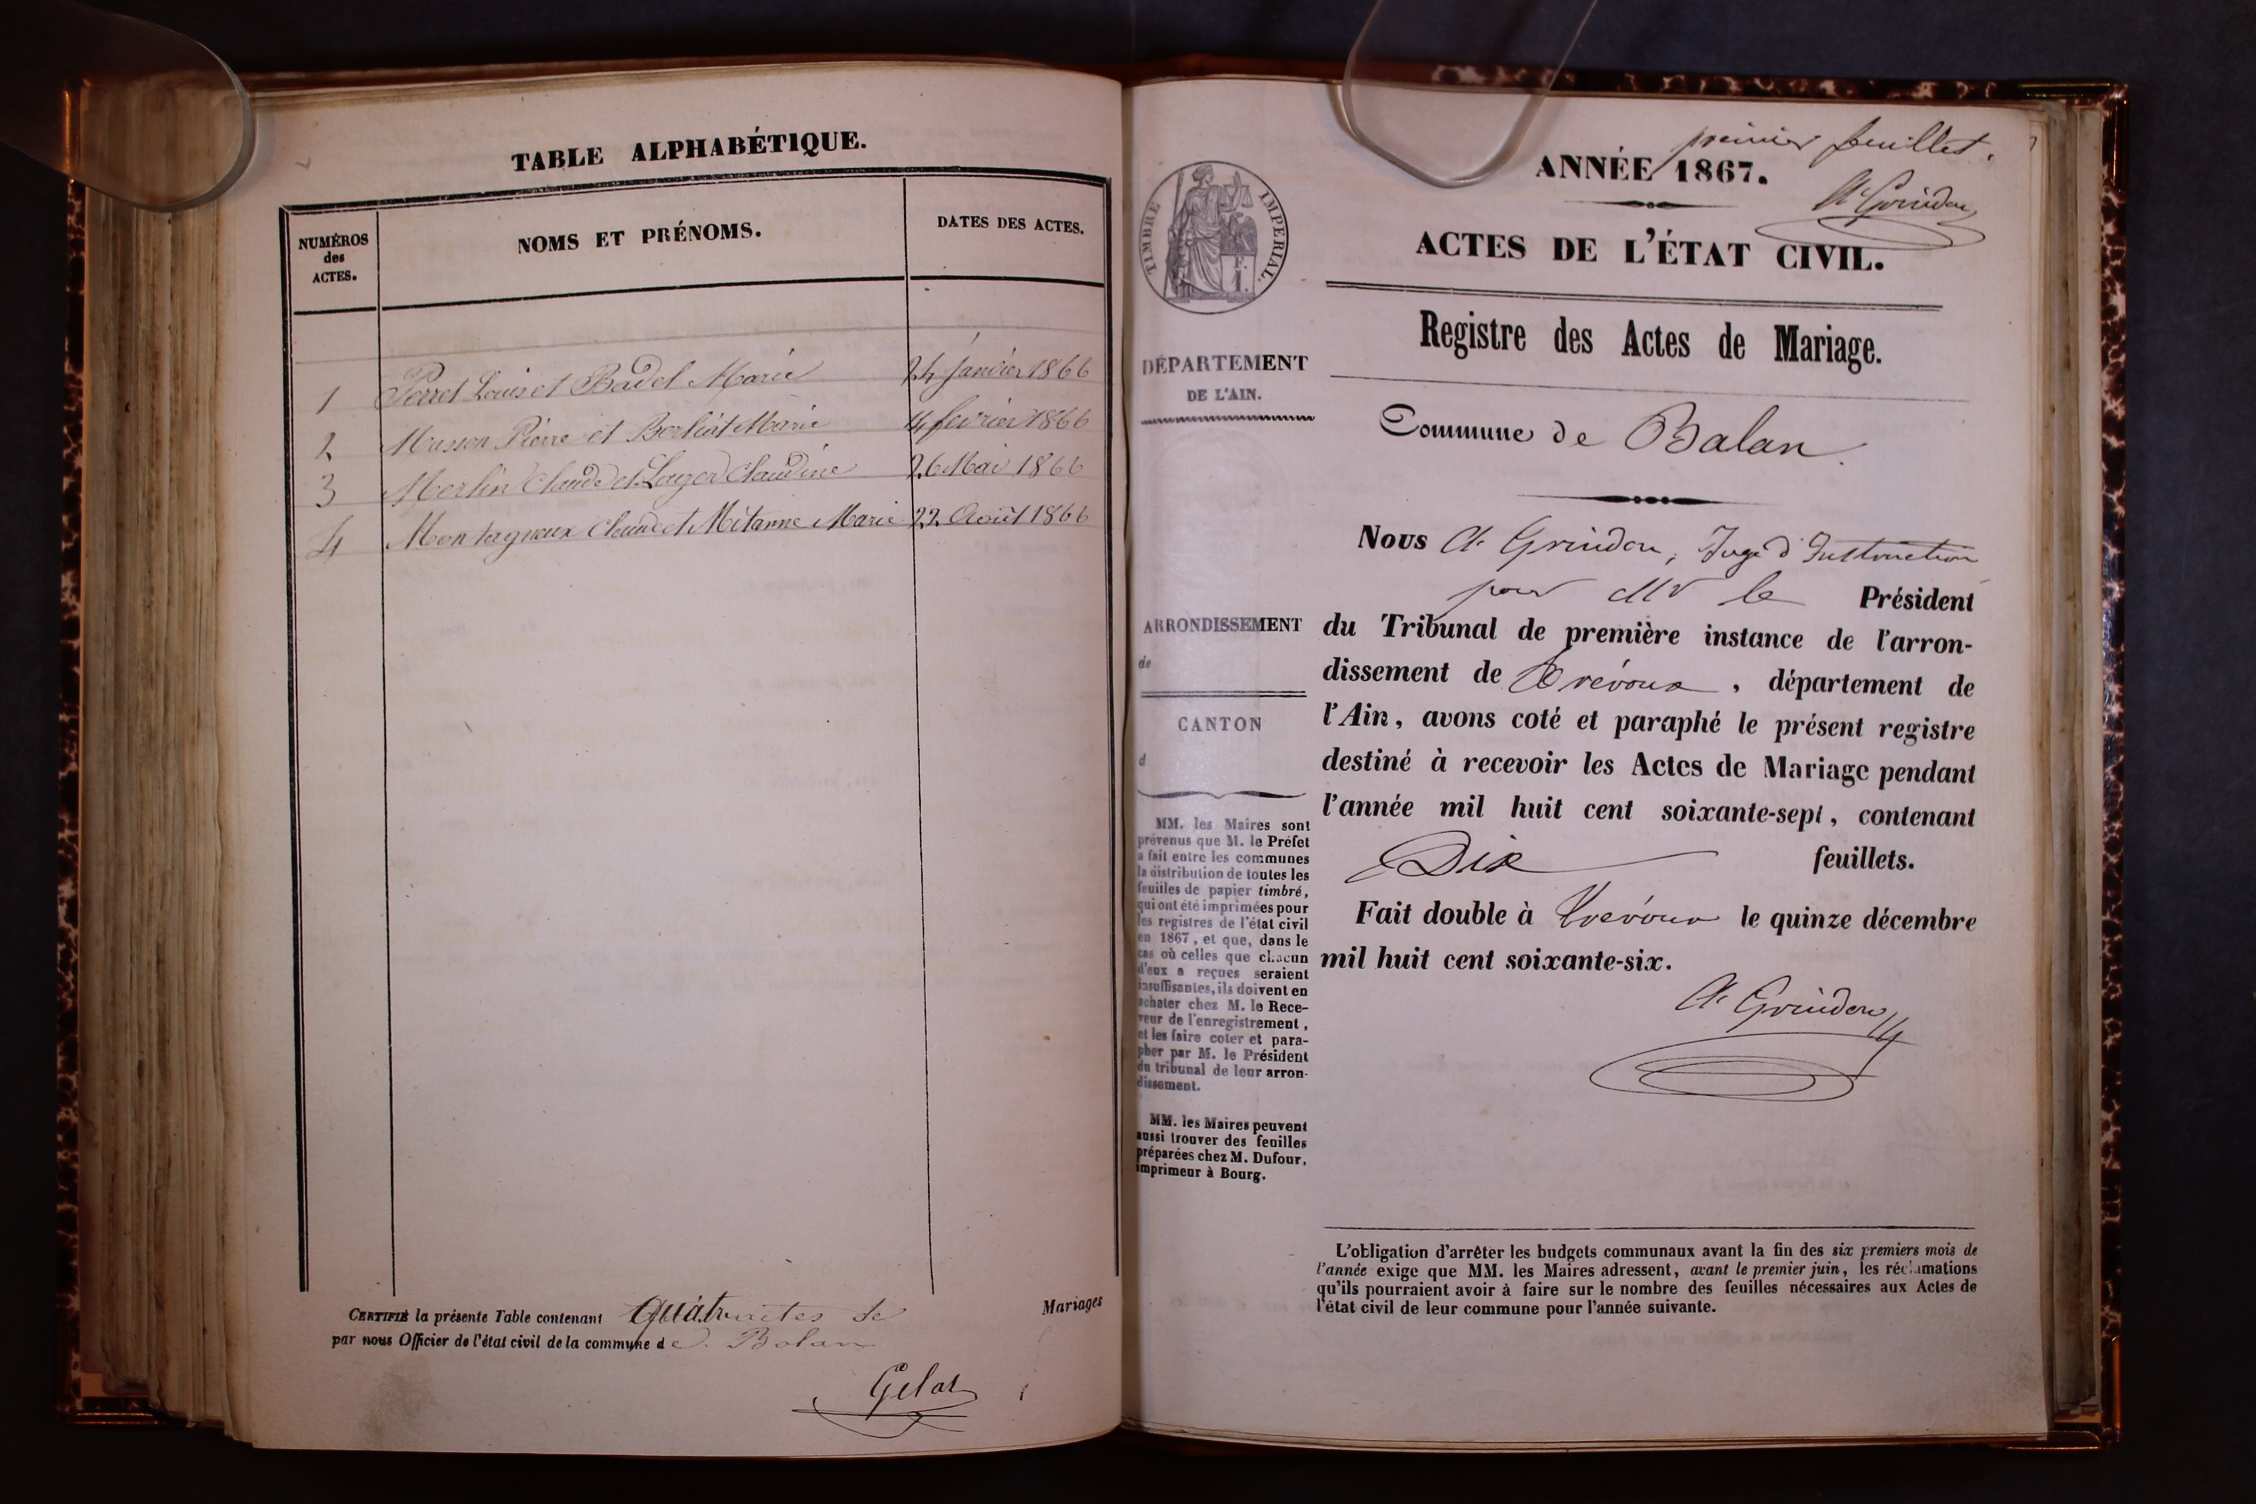 TABLE ALPHABÉTIQUE.
NUMÉROS
des
ACTES.
NOMS ET PRÉNOMS.
DATES DES ACTES.
1 Perret Louis et Badel Marie 24 Janvier 1866
2 Musson Pierre et Berliat Marie 14 février 1866
3 Merlin Claude et Lager Claudine 26 Mai 1866
4 Montagneux Claude et Mitanne Marie 22 Août 1866
CERTIFIÉ la présente Table contenant Quatre actes de Mariages
par nous Officier de l'état civil de la commune de Balan
Gelas
premier feuillet.
ANNÉE 1867.
A. Grindon
ACTES DE L'ÉTAT CIVIL.
Registre des Actes de Mariage.
Commune de Balan.
Nous A. Grindon, Juge d'Instruction
pour Mr le Président
du Tribunal de première instance de l'arron-
dissement de Trévoux, département de
l'Ain, avons coté et paraphé le présent registre
destiné à recevoir les Actes de Mariage pendant
l'année mil huit cent soixante-sept, contenant
Dix feuillets.
Fait double à Trévoux le quinze décembre
mil huit cent soixante-six.
A. Grindon
TIMBRE IMPÉRIAL.
DÉPARTEMENT
DE L'AIN.
ARRONDISSEMENT
de
CANTON
d
MM. les Maires sont
prévenus que M. le Préfet
a fait entre les communes
la distribution de toutes les
feuilles de papier timbré,
qui ont été imprimées pour
les registres de l'état civil
en 1867, et que, dans le
cas où celles que chacun
d'eux a reçues seraient
insuffisantes, ils doivent en
acheter chez M. le Rece-
veur de l'enregistrement,
et les faire coter et para-
pher par M. le Président
du tribunal de leur arron-
dissement.
MM. les Maires peuvent
aussi trouver des feuilles
préparées chez M. Dufour,
imprimeur à Bourg.
L'obligation d'arrêter les budgets communaux avant la fin des six premiers mois de
l'année exige que MM. les Maires adressent, avant le premier juin, les réclamations
qu'ils pourraient avoir à faire sur le nombre des feuilles nécessaires aux Actes de
l'état civil de leur commune pour l'année suivante.